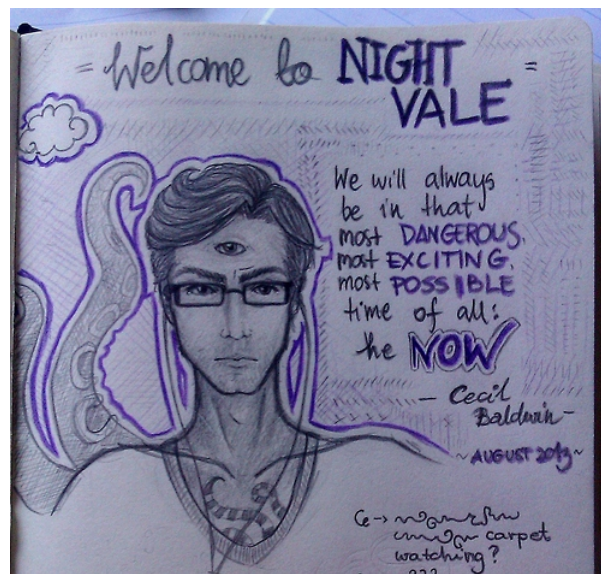 = Welcome to NIGHT =
VALE
We will always
be in that
most DANGEROUS,
most EXCITING,
most POSSIBLE
time of all:
the NOW
— Cecil
Baldwin —
~ AUGUST 2013 ~
carpet
watching?
???